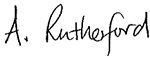 A. Rutherford